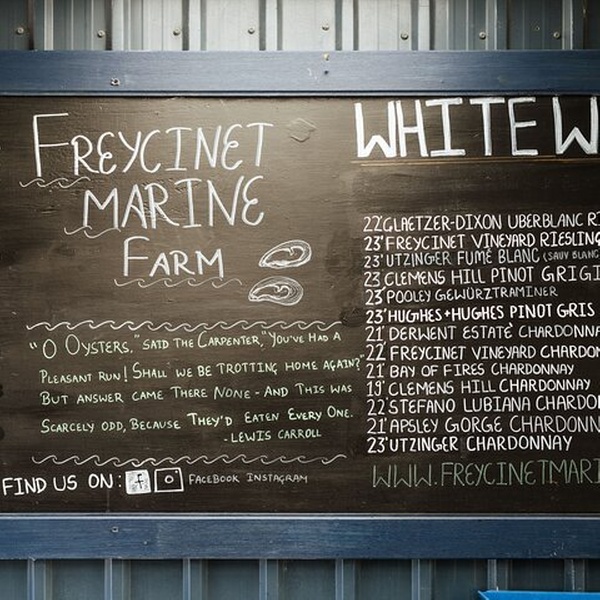 FREYCINET
MARINE
FARM
"O OYSTERS," SAID THE CARPENTER, "YOU'VE HAD A
PLEASANT RUN! SHALL WE BE TROTTING HOME AGAIN?"
BUT ANSWER CAME THERE NONE - AND THIS WAS
SCARCELY ODD, BECAUSE THEY'D EATEN EVERY ONE.
- LEWIS CARROLL
FIND US ON: f FACEBOOK INSTAGRAM
WHITE W
22'GLAETZER-DIXON UBERBLANC RI
23'FREYCINET VINEYARD RIESLING
23'UTZINGER FUMÉ BLANC (SAUV BLANC
23'CLEMENS HILL PINOT GRIGI
23'POOLEY GEWÜRZTRAMINER
23'HUGHES+HUGHES PINOT GRIS
21'DERWENT ESTATE CHARDONNA
22'FREYCINET VINEYARD CHARDON
21'BAY OF FIRES CHARDONNAY
19'CLEMENS HILL CHARDONNAY
22'STEFANO LUBIANA CHARDO
21'APSLEY GORGE CHARDONN
23'UTZINGER CHARDONNAY
WWW.FREYCINETMARI